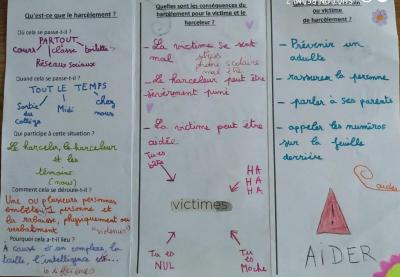 Qu'est-ce que le harcèlement ?
Où cela se passe-t-il ?
PARTOUT
cours classe toilettes
Réseaux sociaux
Quand cela se passe-t-il ?
TOUT LE TEMPS
Sortie du collège
Midi
chez nous
Qui participe à cette situation ?
Le harcelé, le harceleur
et les
témoins
(nous)
Comment cela se déroule-t-il ?
Une ou plusieurs personnes
embêtent 1 personne et
la rabaisse, physiquement ou
verbalement "violences"
Pourquoi cela a-t-il lieu ?
À cause d'un complexe, la
taille, l'intelligence etc...
Quelles sont les conséquences du
harcèlement pour la victime et le
harceleur ?
- La victime se sent
mal
stress
phobie scolaire
mal être
- Le harceleur peut être
sévèrement puni
- La victime peut être
aidée
Tu es
HA
HA
HA
victimes
Tu es
NUL
Tu es
Moche
ou victime
de harcèlement ?
- Prévenir un
adulte
- rassurer la personne
- parler à ses parents
- appeler les numéros
sur la feuille
derrière
aider
AiDER